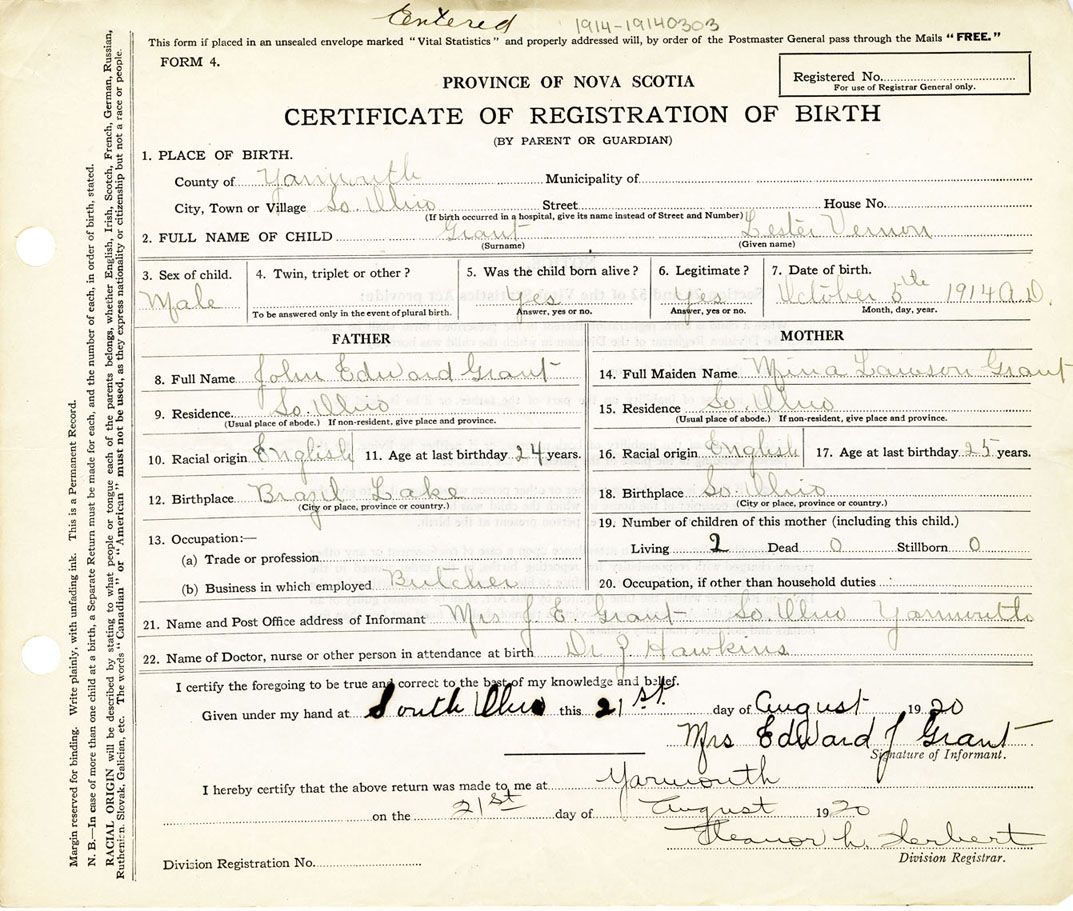 Entered 1914-19140303
This form if placed in an unsealed envelope marked "Vital Statistics" and properly addressed will, by order of the Postmaster General pass through the Mails "FREE."
FORM 4.
Registered No.
For use of Registrar General only.
PROVINCE OF NOVA SCOTIA
CERTIFICATE OF REGISTRATION OF BIRTH
(BY PARENT OR GUARDIAN)
1. PLACE OF BIRTH.
County of Yarmouth Municipality of
City, Town or Village So. Ohio Street House No.
(If birth occurred in a hospital, give its name instead of Street and Number)
2. FULL NAME OF CHILD Grant Lester Vernon
(Surname) (Given name)
3. Sex of child. 4. Twin, triplet or other? 5. Was the child born alive? 6. Legitimate? 7. Date of birth.
Male Yes Yes October 5th 1914 A.D.
To be answered only in the event of plural birth. Answer, yes or no. Answer, yes or no. Month, day, year.
FATHER MOTHER
8. Full Name John Edward Grant 14. Full Maiden Name Mina Lawson Grant
9. Residence. So. Ohio 15. Residence So. Ohio
(Usual place of abode.) If non-resident, give place and province. (Usual place of abode.) If non-resident, give place and province.
10. Racial origin English 11. Age at last birthday 24 years. 16. Racial origin English 17. Age at last birthday 25 years.
12. Birthplace Brazil Lake 18. Birthplace So. Ohio
(City or place, province or country.) (City or place, province or country.)
13. Occupation:— 19. Number of children of this mother (including this child.)
(a) Trade or profession Living 2 Dead 0 Stillborn 0
(b) Business in which employed Butcher 20. Occupation, if other than household duties
21. Name and Post Office address of Informant Mrs J. E. Grant So. Ohio Yarmouth
22. Name of Doctor, nurse or other person in attendance at birth Dr J Hawkins
I certify the foregoing to be true and correct to the best of my knowledge and belief.
Given under my hand at South Ohio this 21st. day of August 1920
Mrs Edward J Grant
Signature of Informant.
I hereby certify that the above return was made to me at Yarmouth
on the 21st day of August 1920
Eleanor L. Herbert
Division Registrar.
Division Registration No.
Margin reserved for binding. Write plainly, with unfading ink. This is a Permanent Record.
N. B.—In case of more than one child at a birth, a Separate Return must be made for each, and the number of each, in order of birth, stated.
RACIAL ORIGIN will be described by stating to what people or tongue each of the parents belongs, whether English, Irish, Scotch, French, German, Russian,
Ruthenian, Slovak, Galician, etc. The words "Canadian" or "American" must not be used, as they express nationality or citizenship but not a race or people.